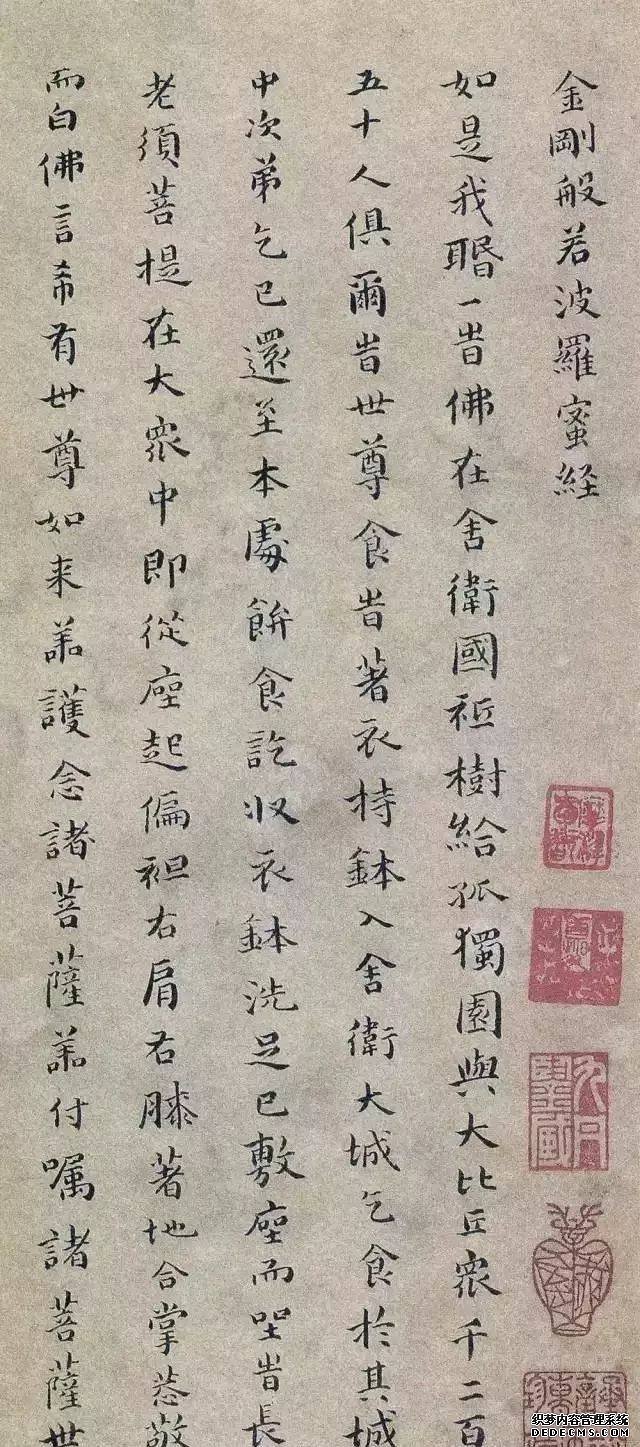 金剛般若波羅蜜経
如是我䎽一旹佛在舍衛國祇樹給孤獨園與大比丘衆千二百
五十人俱爾旹世尊食旹著衣持鉢入舍衛大城乞食於其城
中次第乞已還至本處飯食訖収衣鉢洗足已敷座而坐旹長
老須菩提在大衆中即從座起偏袒右肩右膝著地合掌恭敬
而白佛言希有世尊如来善護念諸菩薩善付囑諸菩薩世
织梦内容管理系统
DEDECMS.COM